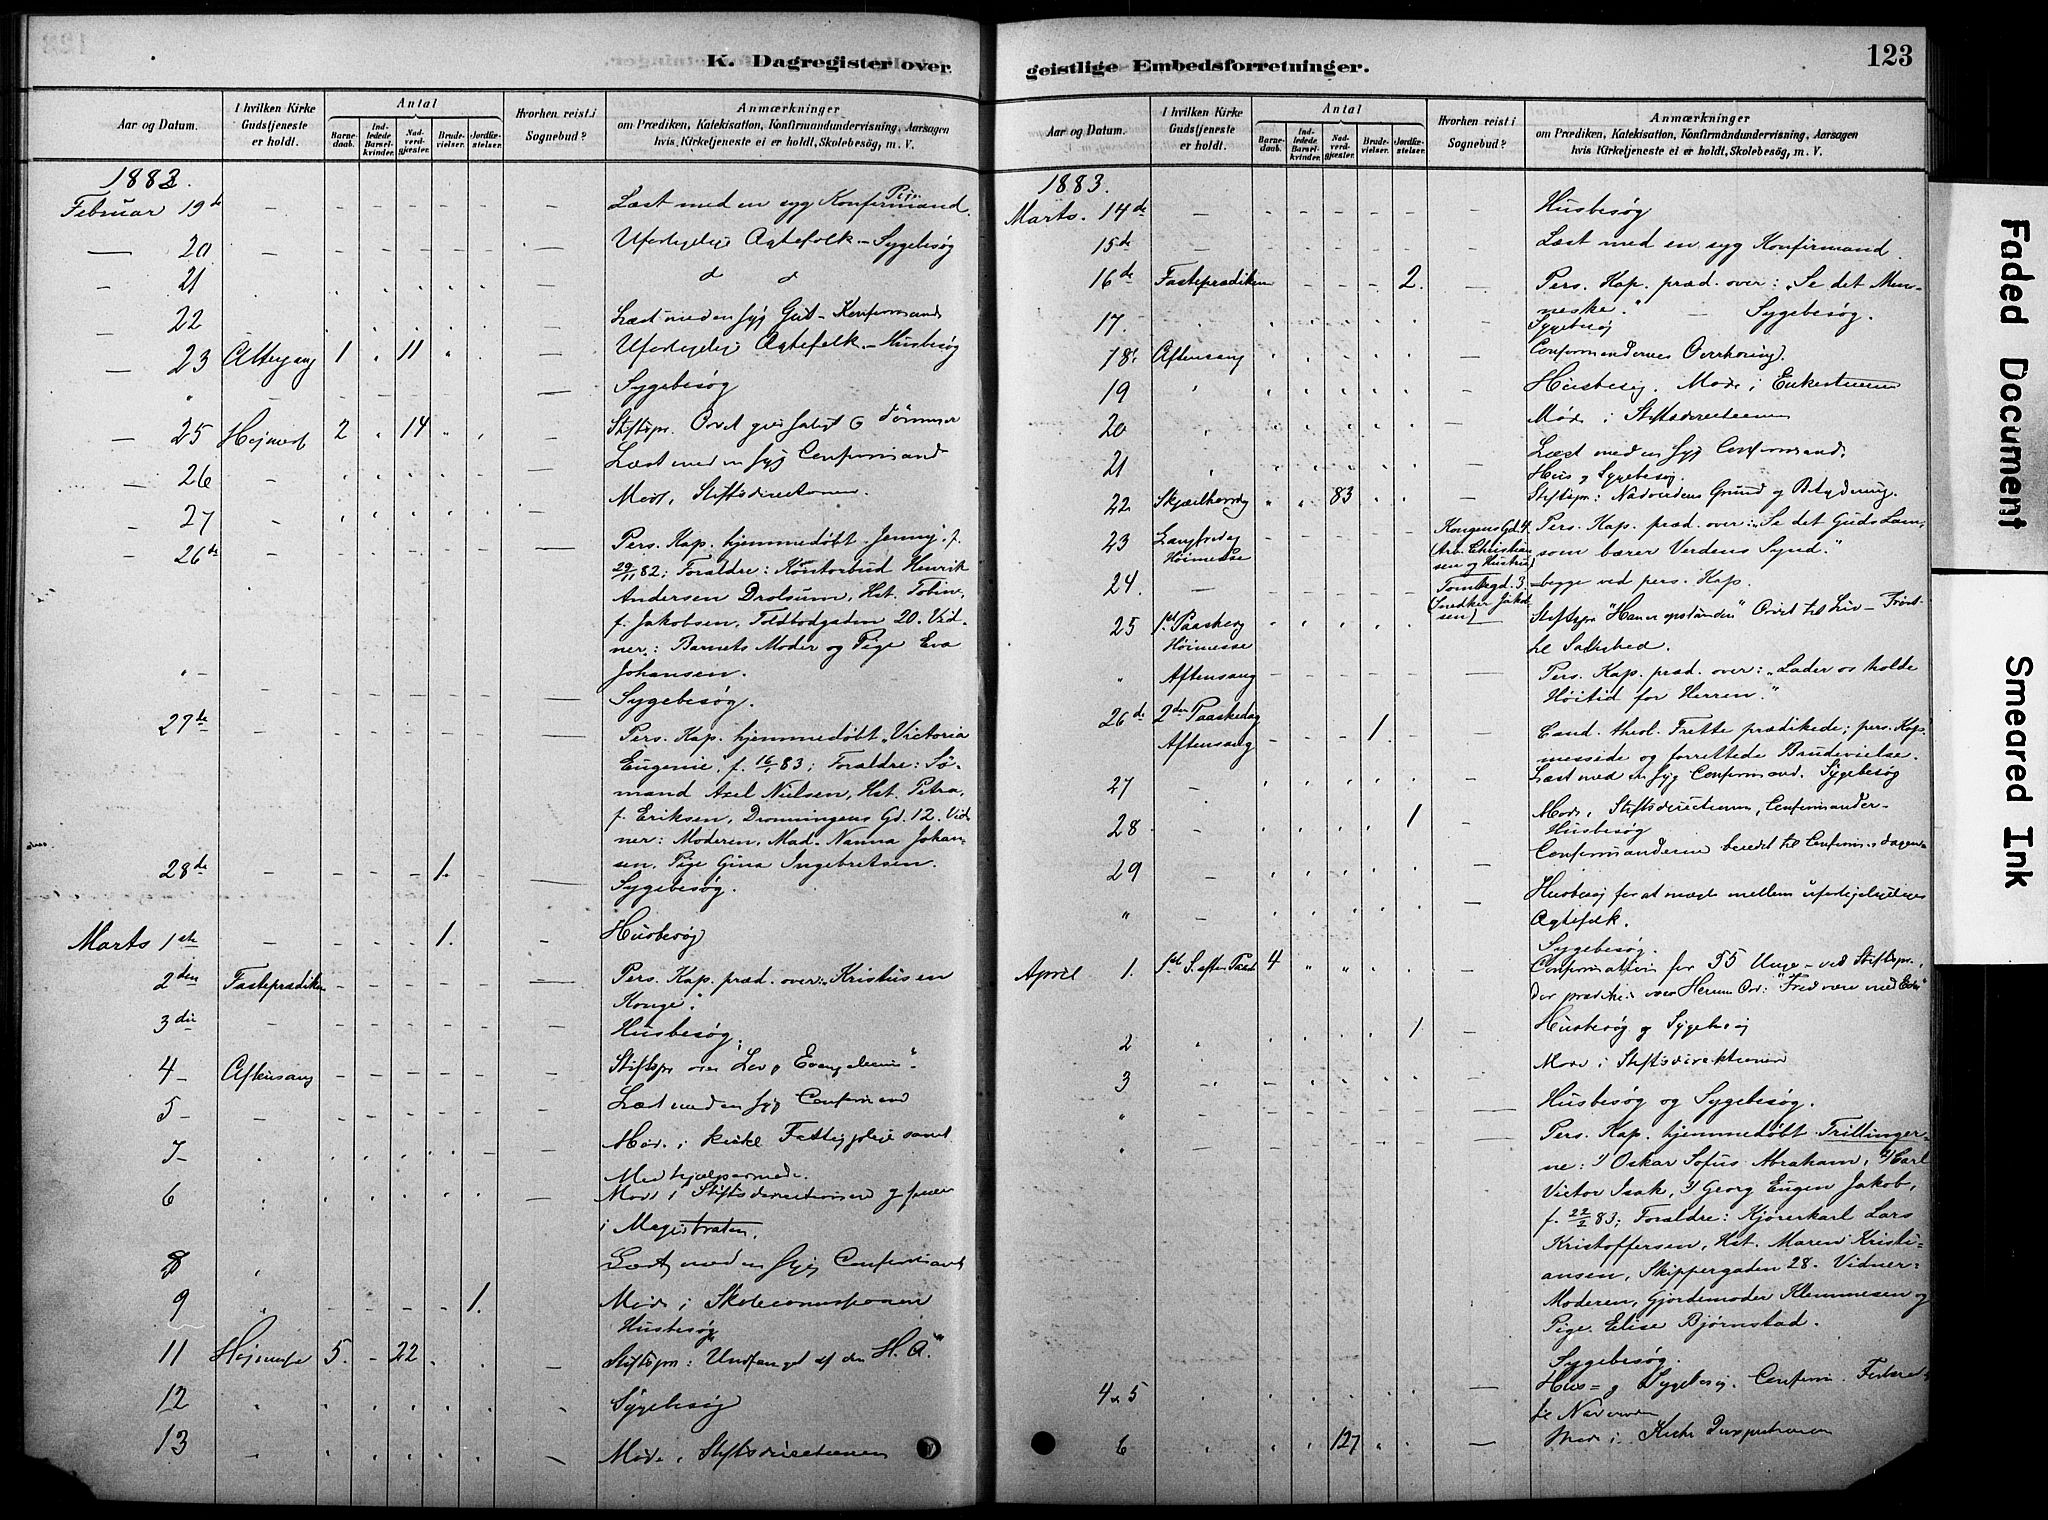 K. Dagregister over
Aar og Datum.
I hvilken Kirke Gudstjeneste er holdt.
Antal
Barnedaab.
Indledede Barselkvinder.
Nadverdgjester.
Brudevielser.
Jordfæstelser.
Hvorhen reist i Sognebud?
Anmærkninger
om Prædiken, Katekisation, Konfirmandundervisning, Aarsagen
hvis Kirketjeneste ei er holdt, Skolebesög, m. V.
1883.
Februar 19de Læst med en syg Konfirmand. Pige
20 Uforligelige Ægtefolk - Sygebesøg
21 d d
22 Læst med en syg Gut - Konfirmand
23 Altergang 1 11 Uforligelige Ægtefolk - Husbesøg
Sygebesøg
25 Højmesse 2 14 Stiftspr. Ordet
26 Læst med en syg Confirmand
27 Møde i Stiftsdirectionen.
26de Pers. Kap. hjemmedøbt Jenny, f.
29/11 82; Forældre: Kontorbud Henrik
Andersen Drolsum, Hst. Tobine,
f. Jakobsen, Toldbodgaden 20. Vid-
ner: Barnets Moder og Pige Eva
Johansen.
Sygebesøg.
27de Pers. Kap. hjemmedøbt „Victoria
Eugenie", f. 16/1 83; Forældre: Sø-
mand Axel Nielsen, Hst. Petra,
f. Eriksen, Dronningens Gd. 12. Vid-
ner: Moderen, Mad. Nanna Johan-
sen, Pige Gina Ingebretsen.
28de 1. Sygebesøg.
Marts 1ste 1. Husbesøg
2den Fasteprædiken Pers. Kap. præd. over: „Kristus en
Konge".
3die Husbesøg.
4 - Aftensang Stiftspr over Lov og Evangelium".
5 - Læst med en syg Confirmand
7 - Møde i Fattigpleje samt
Medhjælpermøde.
6 Møde i Stiftsdirectionen
i Magistraten.
8 Læst med en syg Confirmand
9 1. Møde i Skolecommissionen
Husbesøg
11 Højmesse 5. 22 Stiftspr: Undfanget af den H. A."
12 Sygebesøg
13 Møde i Stiftsdirectionen
geistlige Embedsforretninger.
123
Aar og Datum.
I hvilken Kirke Gudstjeneste er holdt.
Antal
Barnedaab.
Indledede Barselkvinder.
Nadverdgjester.
Brudevielser.
Jordfæstelser.
Hvorhen reist i Sognebud?
Anmærkninger
om Prædiken, Katekisation, Konfirmandundervisning, Aarsagen
hvis Kirketjeneste ei er holdt, Skolebesög, m. V.
1883.
Marts. 14de Husbesøg
15de Læst med en syg Konfirmand.
16de Fasteprædiken 2. Pers. Kap. præd. over: „Se det Men-
neske." - Sygebesøg.
17. Sygebesøg
18. Aftensang Confirmandernes Overhøring.
19 Husbesøg. Møde i Enkestuerne
20 Møde i Stiftsdirectionen
21 Læst med en syg Confirmand.
Hus og Sygebesøg.
22 Skjærthorsdag 83 Stiftspr: Nadverdens Grund og Betydning.
23 Langfredag Høimesse Kongens Gd. 4. (Arb. Christiansen og Hustru) Pers. Kap. præd. over: „Se det Guds Lam,
som bærer Verdens Synd."
24. Tomtegd. 3. (Snedker Jakobsen) - begge ved pers. Kap.
25 1ste Paaskedag Høimesse Stiftspr "Han er opstanden" Ordet til Liv - Trøst -
til Salighed.
" Aftensang Pers. Kap. præd. over: „Lader os holde
Høitid for Herren."
26de 2den Paaskedag Aftensang 1. Cand. theol. Frette prædikede; pers. Kap.
messede og forrettede Brudevielse.
27 Læst med en syg Confirmand. Sygebesøg
28 1 Møde i Stiftsdirectionen, Confirmander -
Husbesøg
29 Confirmanderne beredet til Confirmasdagen
" Husbesøg for at mægle mellem uforligelige
Ægtefolk.
Sygebesøg.
April 1. 1ste S. efter Paaske 4 Confirmation for 55 Unge - ved Stiftspr.,
der prædikede over Herrens Ord: "Fred være med Eder"
2 1 Husbesøg og Sygebesøg
3 Møde i Stiftsdirektionen
" Husbesøg og Sygebesøg.
" Pers. Kap. hjemmedøbt Trillinger-
ne: 1) Oskar Sofus Abraham, 2) Karl
Victor Isak, 3) Georg Eugen Jakob,
f. 22/2 83; Forældre: Kjørerkarl Lars
Kristoffersen, Hst. Maren Kristi-
ansen, Skippergaden 28. Vidner-
Moderen, Gjordemoder Klemmesen og
Pige Elise Bjørnstad.
Sygebesøg.
4 & 5 Hus- og Sygebesøg. Confirm.
til Nadverden
6 127 Møde i
Faded Document
Smeared Ink